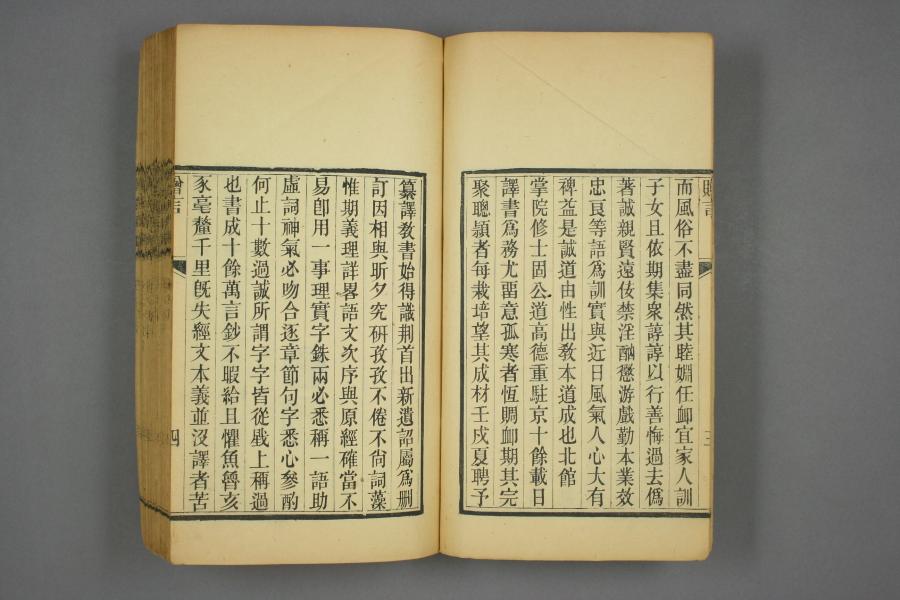 而風俗不盡同然其睦婣任䘏宜家人訓
子女且依期集衆諄諄以行善悔過去僞
著誠親賢遠佞禁淫酗懲游戲勤本業效
忠良等語爲訓實與近日風氣人心大有
裨益是誠道由性出敎本道成也北館
掌院修士固公道高德重駐京十餘載日
譯書爲務尤畱意孤寒者恆賙䘏期其完
聚聰穎者每栽培望其成材壬戌夏聘予
纂譯敎書始得識荆首出新遺詔屬爲删
訂因相與昕夕究研孜孜不倦不尙詞藻
惟期義理詳畧語文次序與原經確當不
易卽用一事理實字銖兩必悉稱一語助
虛詞神氣必吻合逐章節句字悉心參酌
何止十數過誠所謂字字皆從戥上稱過
也書成十餘萬言鈔不暇給且懼魚魯亥
豕毫釐千里旣失經文本義並沒譯者苦
四